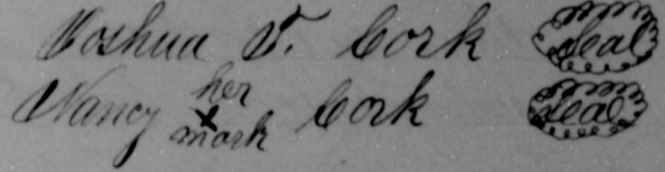 Joshua T. Cork Seal
Nancy her x mark Cork Seal